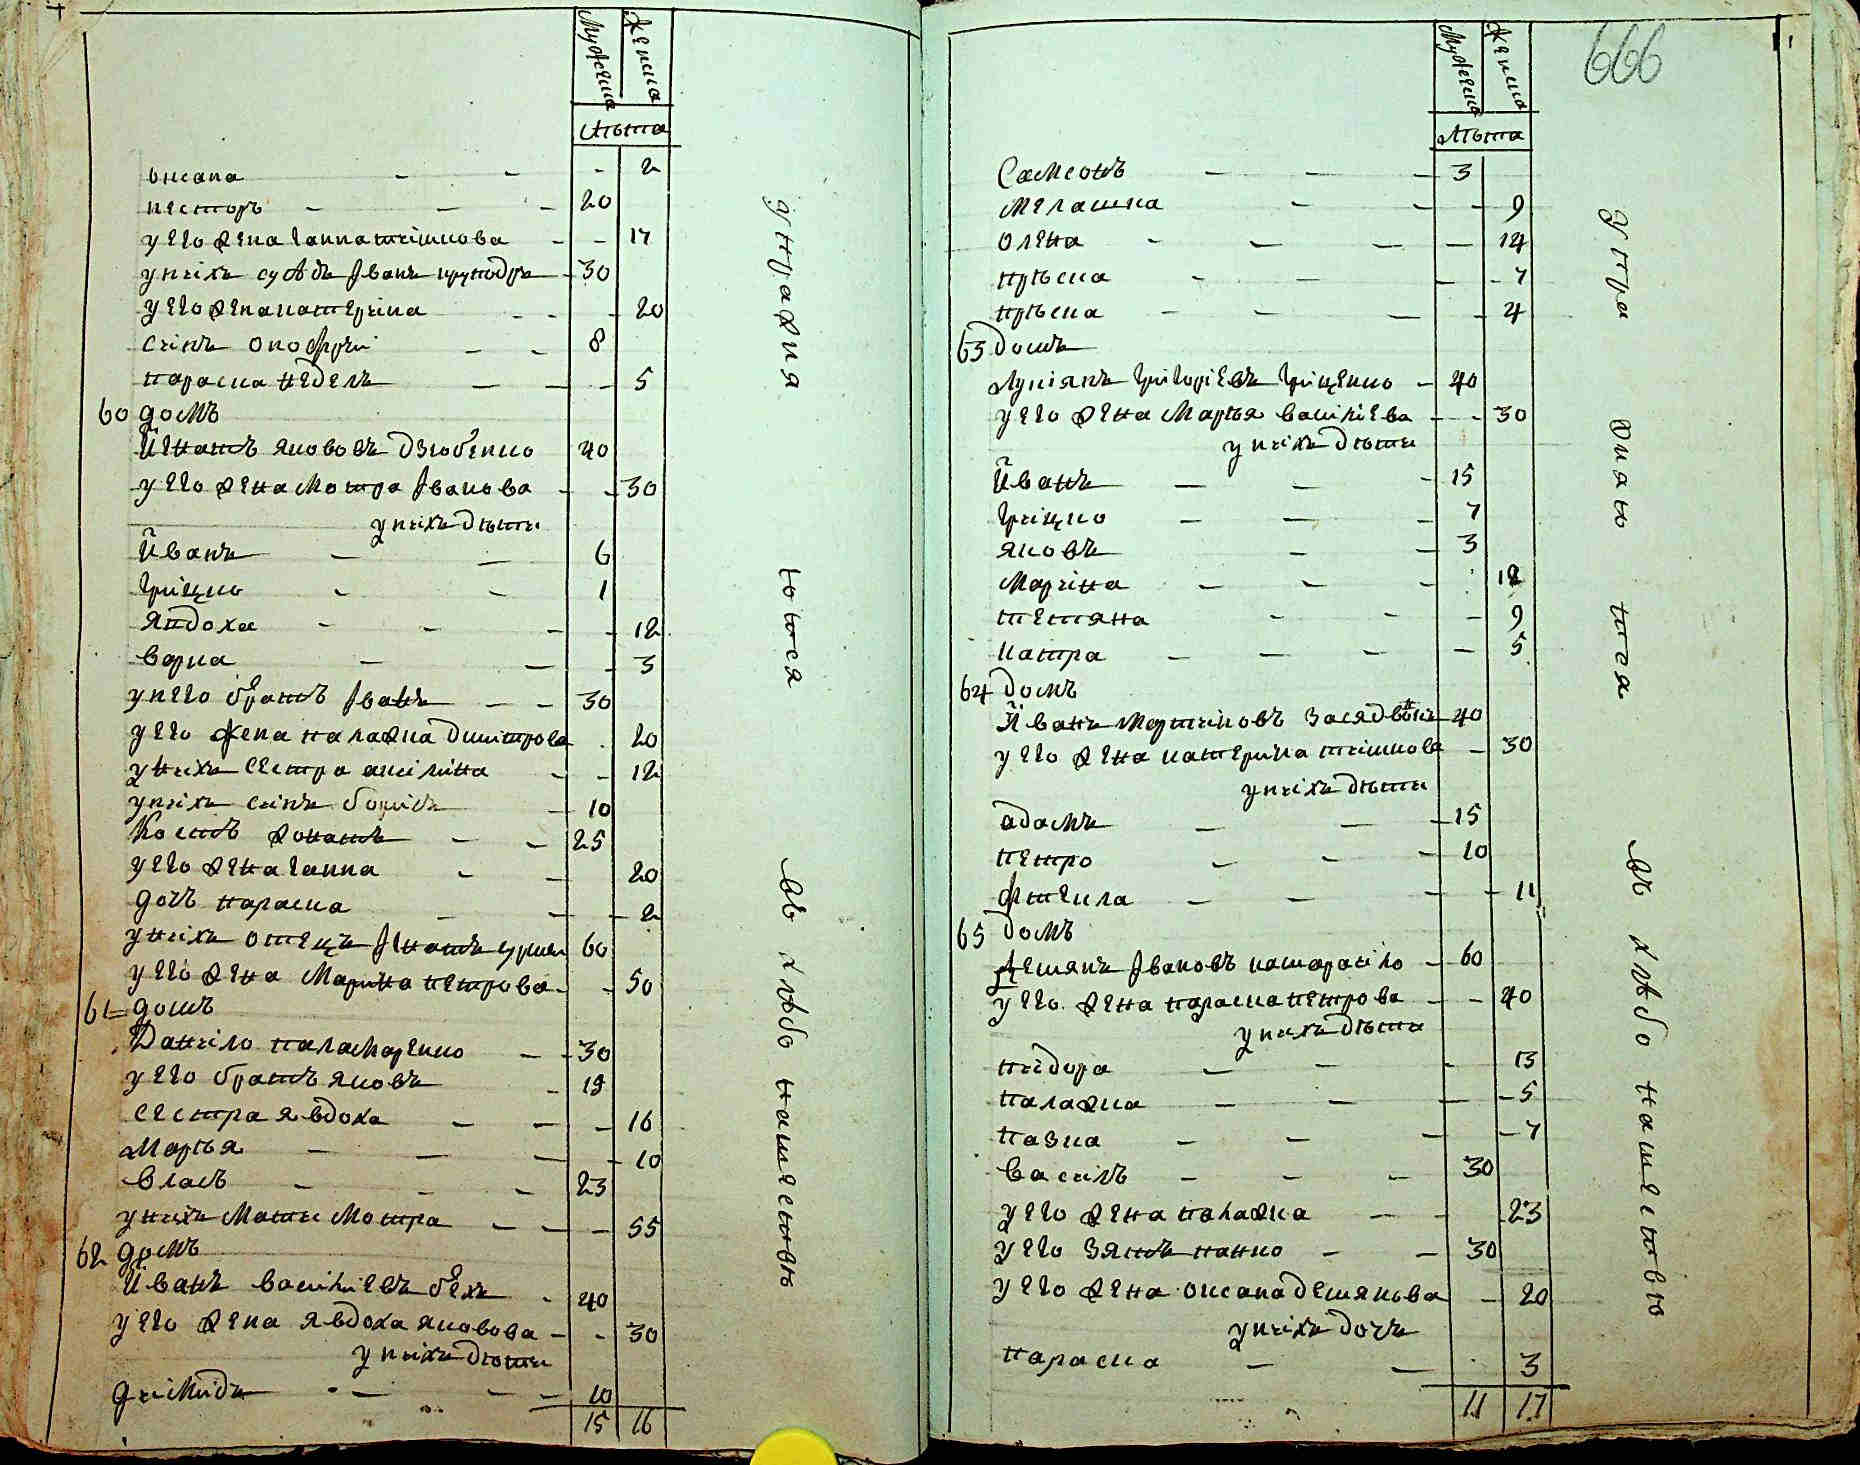 Мужеска Женска
Лѣта
оксана - - - 2
несторъ - - - 20
у его жена ганна тишкова - - 17
у нихъ сусѣдъ Іванъ - 30
у его жена катерина - - - 20
синъ онофрій - - 8
параска - - - 5
60 домъ
Игнатъ яковъвъ дзюбенко 40
у его жена мотра Іванова - - 30
у нихъ дѣти
Иванъ - - 6
грицко - - 1
явдоха - - - - 12
варка - - - 3
у него братъ Іванъ - - 30
у его жена палажка дмитрова - 20
у нихъ сестра акилина - - 12
у нихъ синъ борисъ - 10
Костъ - - 25
у его жена ганна - - 20
дочъ параска - - - 2
у нихъ отецъ Игнатъ 60
у его жена Марина петрова - - 50
61 домъ
Данило паламаренко - - 30
у его братъ яковъ - 19
сестра явдоха - - - 16
Марья - - - - 10
власъ - - - 23
у нихъ мати мотра - - - 55
62 домъ
Иванъ василіевъ - 40
у его жена явдоха яковова - - 30
у нихъ дѣти
димидъ - - - 10
15 16
у кражкя
котся
въ хлѣбо пашествѣ
666
Мужеска Женска
Лѣта
Самсонъ - - - 3
мелашка - - - 9
олена - - - - 14
приска - - - - 7
приска - - - - 4
63 домъ
Лукіянъ григоріевъ гриценко - 40
у его жена Марья василіева - - 30
у нихъ дѣти
Иванъ - - - 15
грицко - - - 7
яковъ - - 3
марина - - - 12
тетяна - - - 9
катра - - - - 5
64 домъ
Иванъ мартиновъ 40
у его жена катерина тишкова - 30
у нихъ дѣти
адамъ - - - 15
петро - - - 10
фтекла - - - - 11
65 домъ
демянъ Івановъ - 60
у его жена параска петрова - - 40
у нихъ дѣти
пидора - - - 13
палажка - - - - 5
пазка - - - - 7
василъ - - - 30
у его жена палажка - - 23
у его зять панко - - 30
у его жена оксана демянова - 20
у нихъ дочъ
параска - - 3
11 17
въ хлѣбо пашествѣ